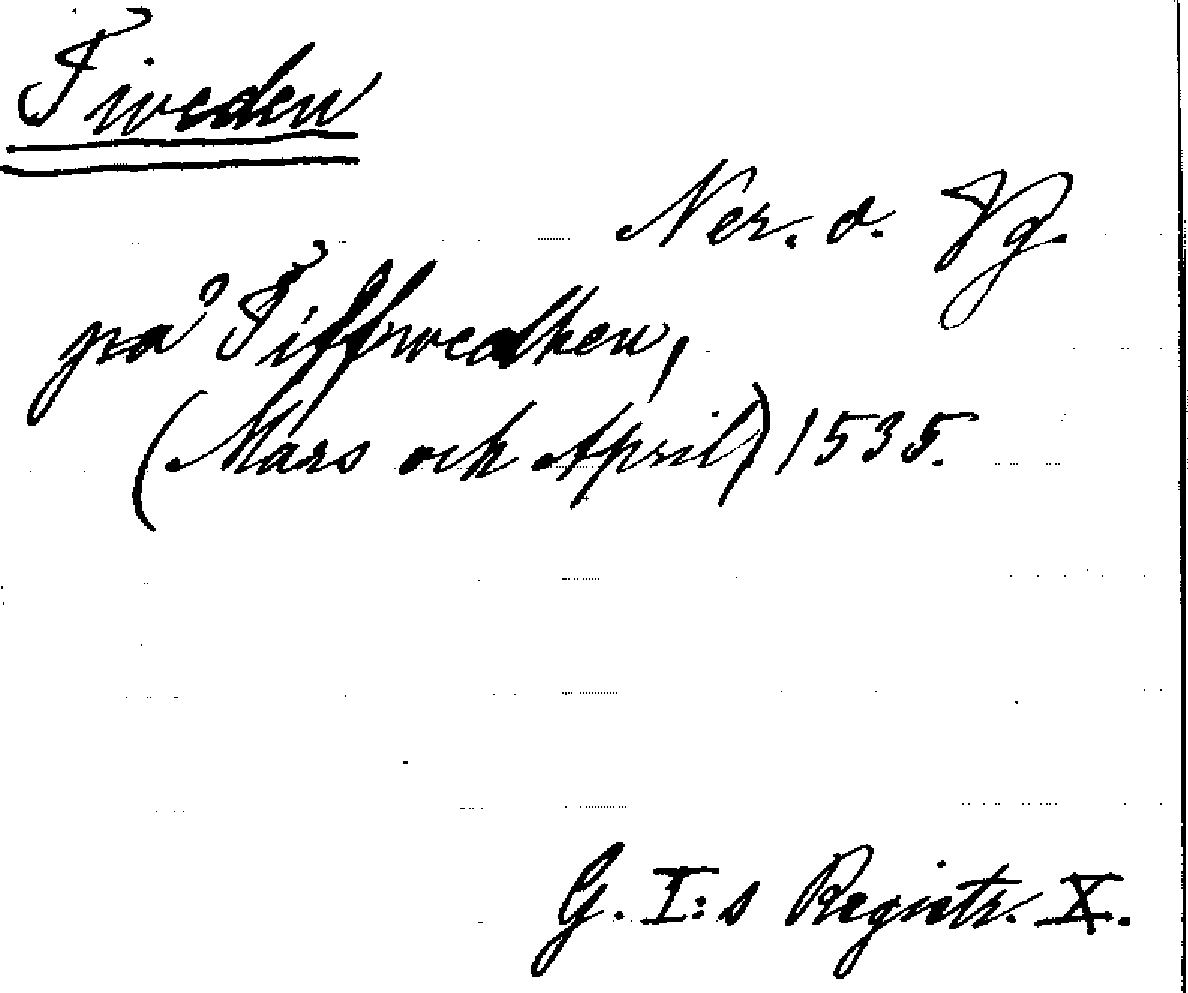 Tiveden
Ner. o. Vg.
på Tiffwedhen,
(Mars och April) 1535.
G. I:s Registr. X.